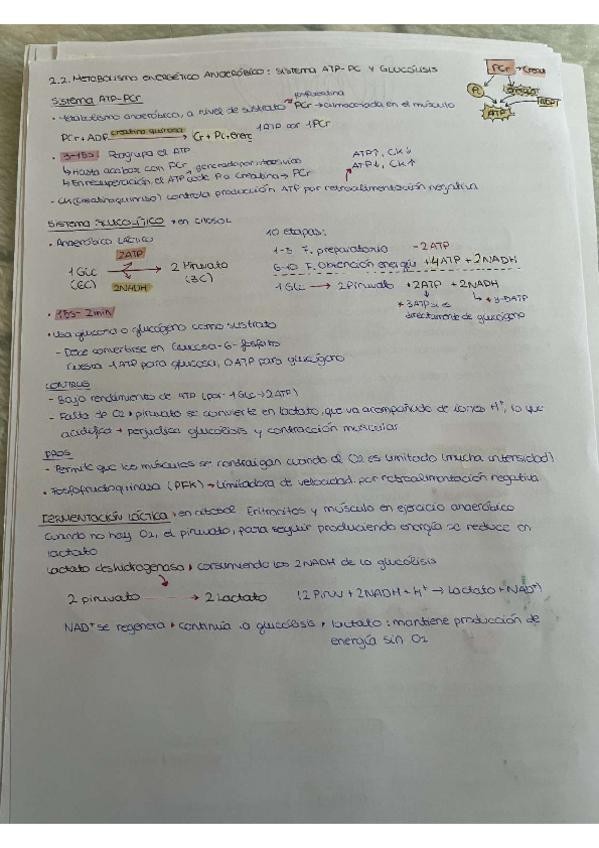 2.2. METABOLISMO ENERGÉTICO ANAERÓBICO: SISTEMA ATP-PC Y GLUCÓLISIS
PCr → Creat
Pi energía ADP
ATP
SISTEMA ATP-PCr
fosfocreatina
• Metabolismo anaeróbico, a nivel de sustrato → PCr → almacenada en el músculo
PCr + ADP creatina quinasa → Cr + Pi + energ 1 ATP por 1 PCr
• 3-15s Reagrupa el ATP
↳ Hasta acabar con PCr
↳ En recuperación, el ATP cede P a creatina → PCr
ATP↑, CK↓
ATP↓, CK↑
- CK (creatina quinasa) controla producción ATP por retroalimentación negativa
SISTEMA GLUCOLÍTICO → en CITOSOL
• Anaeróbico láctico
10 etapas:
1-5 F. preparatoria - 2ATP
6-10 F. Obtención energía + 4ATP + 2NADH
2ATP
1 Glc → 2 Piruvato
(6C) (3C)
2NADH
1 Glc → 2 Piruvato + 2ATP + 2NADH
+ 3ATP si es directamente de glucógeno
• 15s - 2min
• Usa glucosa o glucógeno como sustrato
- Debe convertirse en Glucosa-6-fosfato
Cuesta -1 ATP para glucosa, 0 ATP para glucógeno
CONTRAS
- Bajo rendimiento de ATP (por 1 Glc → 2ATP)
- Falta de O2 → piruvato se convierte en lactato, que va acompañado de iones H+, lo que
acidifica → perjudica glucólisis y contracción muscular
PROS
- Permite que los músculos se contraigan cuando el O2 es limitado (mucha intensidad)
• Fosfofructoquinasa (PFK) → Limitadora de velocidad por retroalimentación negativa
FERMENTACIÓN LÁCTICA → en citosol. Eritrocitos y músculo en ejercicio anaeróbico
Cuando no hay O2, el piruvato, para seguir produciendo energía se reduce en
lactato
Lactato deshidrogenasa → consumiendo los 2NADH de la glucólisis
2 piruvato → 2 Lactato (2 Piruv + 2NADH + H+ → Lactato + NAD+)
NAD+ se regenera → continúa la glucólisis → lactato: mantiene producción de
energía sin O2